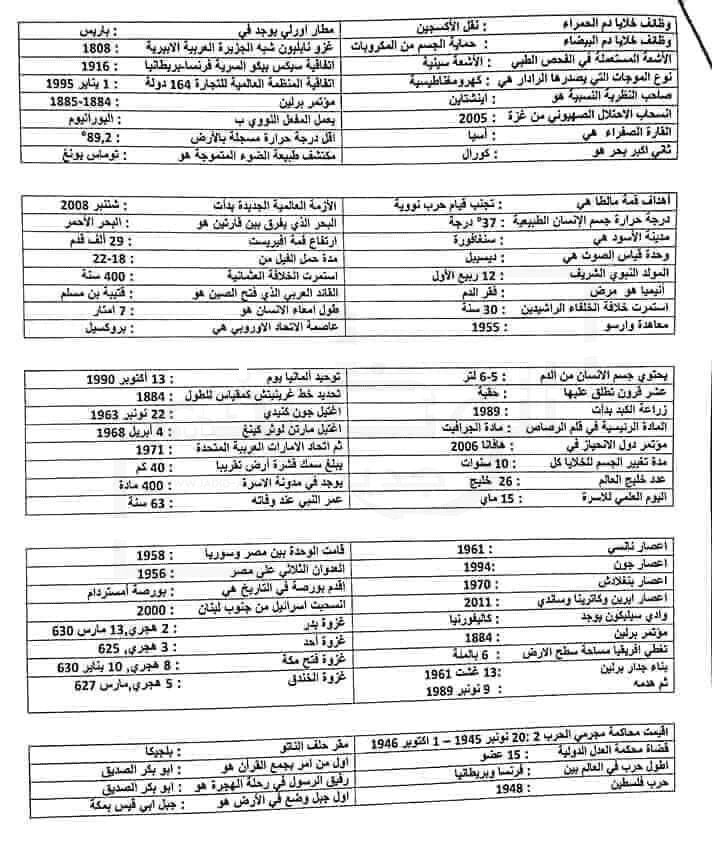 وظائف خلايا دم الحمراء : نقل الأكسجين
وظائف خلايا دم البيضاء : حماية الجسم من المكروبات
الأشعة المستعملة في الفحص الطبي : الأشعة سينية
نوع الموجات التي يصدرها الرادار هي : كهرومغناطيسية
صاحب النظرية النسبية هو : اينشتاين
انسحاب الاحتلال الصهيوني من غزة : 2005
القارة الصفراء هي : آسيا
ثاني اكبر بحر هو : كورال
مطار اورلي يوجد في : باريس
غزو نابليون شبه الجزيرة العربية الايبيرية : 1808
اتفاقية سيكس بيكو السرية فرنسا،بريطانيا : 1916
اتفاقية المنظمة العالمية للتجارة 164 دولة : 1 يناير 1995
مؤتمر برلين : 1884-1885
يعمل المفعل النووي ب : اليورانيوم
اقل درجة حرارة مسجلة بالأرض : 89,2°
مكتشف طبيعة الضوء المتموجة هو : توماس يونغ
أهداف قمة مالطا هي : تجنب قيام حرب نووية
درجة حرارة جسم الإنسان الطبيعية : 37° درجة
مدينة الأسود هي : سنغافورة
وحدة قياس الصوت هي : ديسيبل
المولد النبوي الشريف : 12 ربيع الأول
أنيميا هو مرض : فقر الدم
استمرت خلافة الخلفاء الراشيدين : 30 سنة
معاهدة وارسو : 1955
الأزمة العالمية الجديدة بدأت : شتنبر 2008
البحر الذي يفرق بين قارتين هو : البحر الأحمر
ارتفاع قمة افيريست : 29 ألف قدم
مدة حمل الفيل من : 18-22
استمرت الخلافة العثمانية : 400 سنة
القائد العربي الذي فتح الصين هو : قتيبة بن مسلم
طول امعاء الانسان هو : 7 أمتار
عاصمة الاتحاد الاوروبي هي : بروكسيل
يحتوي جسم الانسان من الدم : 5-6 لتر
عشر قرون تطلق عليها : حقبة
زراعة الكبد بدأت : 1989
المادة الرئيسية في قلم الرصاص : مادة الجرافيت
مؤتمر دول الانحياز في : هافانا 2006
مدة تغيير الجسم للخلايا كل : 10 سنوات
عدد خليج العالم : 26 خليج
اليوم العلمي للاسرة : 15 ماي
توحيد ألمانيا يوم : 13 أكتوبر 1990
تحديد خط غرينيتش كمقياس للطول : 1884
اغتيل جون كنيدي : 22 نونبر 1963
اغتيل مارتن لوثر كينغ : 4 أبريل 1968
تم اتحاد الامارات العربية المتحدة : 1971
يبلغ سمك قشرة أرض تقريبا : 40 كم
يوجد في مدونة الاسرة : 400 مادة
عمر النبي عند وفاته : 63 سنة
اعصار نانسي : 1961
اعصار جون : 1994
اعصار بنغلادش : 1970
اعصار ايرين وكاترينا وساندي : 2011
وادي سيليكون يوجد : كاليفورنيا
مؤتمر برلين : 1884
تغطي افريقيا مساحة سطح الارض : 6 بالمئة
بناء جدار برلين : 13 غشت 1961
تم هدمه : 9 نونبر 1989
قامت الوحدة بين مصر وسوريا : 1958
العدوان الثلاثي على مصر : 1956
اقدم بورصة في التاريخ هي : بورصة أمستردام
انسحبت اسرائيل من جنوب لبنان : 2000
غزوة بدر : 2 هجري,13 مارس 630
غزوة أحد : 3 هجري, 625
غزوة فتح مكة : 8 هجري, 10 يناير 630
غزوة الخندق : 5 هجري,مارس 627
اقيمت محاكمة مجرمي الحرب 2 :20 نونبر 1945 – 1 اكتوبر 1946
قضاة محكمة العدل الدولية : 15 عضو
اطول حرب في العالم بين : فرنسا وبريطانيا
حرب فلسطين : 1948
مقر حلف الناتو : بلجيكا
اول من امر بجمع القرآن هو : ابو بكر الصديق
رفيق الرسول في رحلة الهجرة هو : أبو بكر الصديق
اول جبل وضع في الأرض هو : جبل ابي قيس بمكة